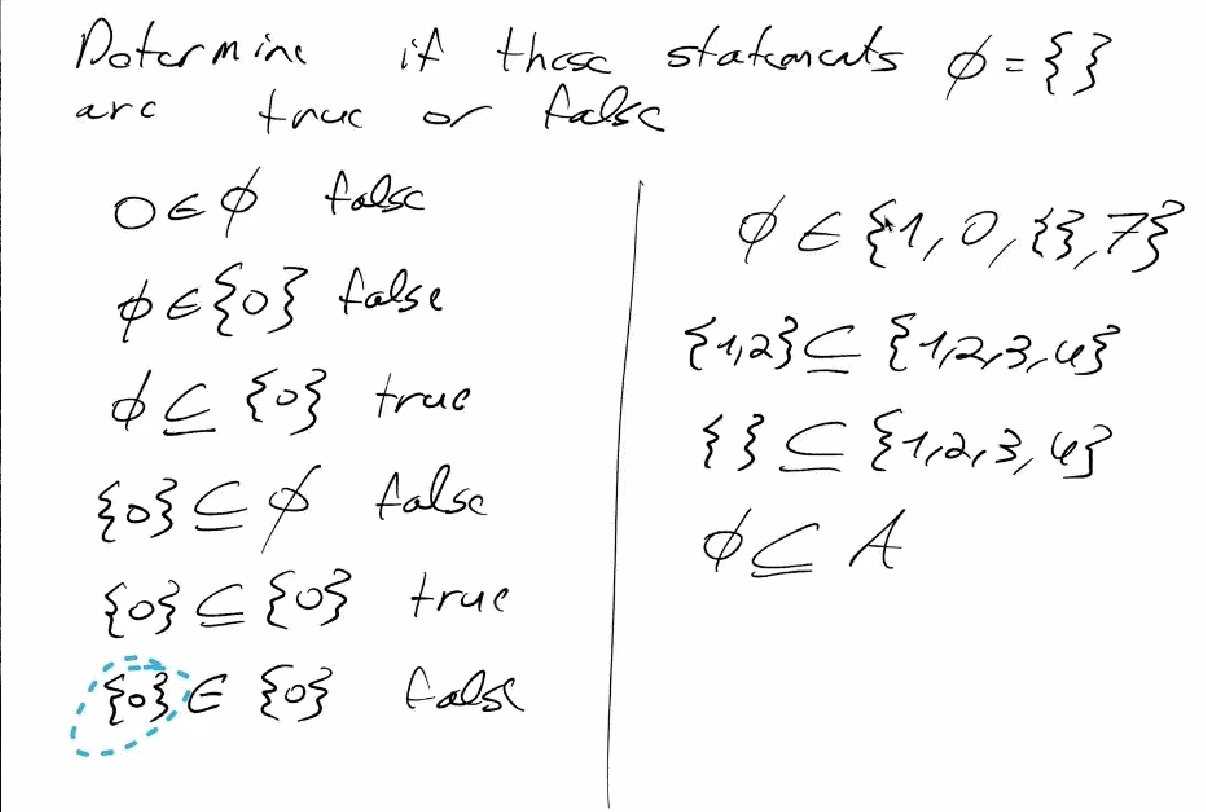 Determine if these statements ϕ = { }
are true or false
0 ∈ ϕ false
ϕ ∈ {0} false
ϕ ⊆ {0} true
{0} ⊆ ϕ false
{0} ⊆ {0} true
{0} ∈ {0} false
ϕ ∈ {1, 0, { }, 7}
{1,2} ⊆ {1,2,3,4}
{ } ⊆ {1,2,3,4}
ϕ ⊆ A